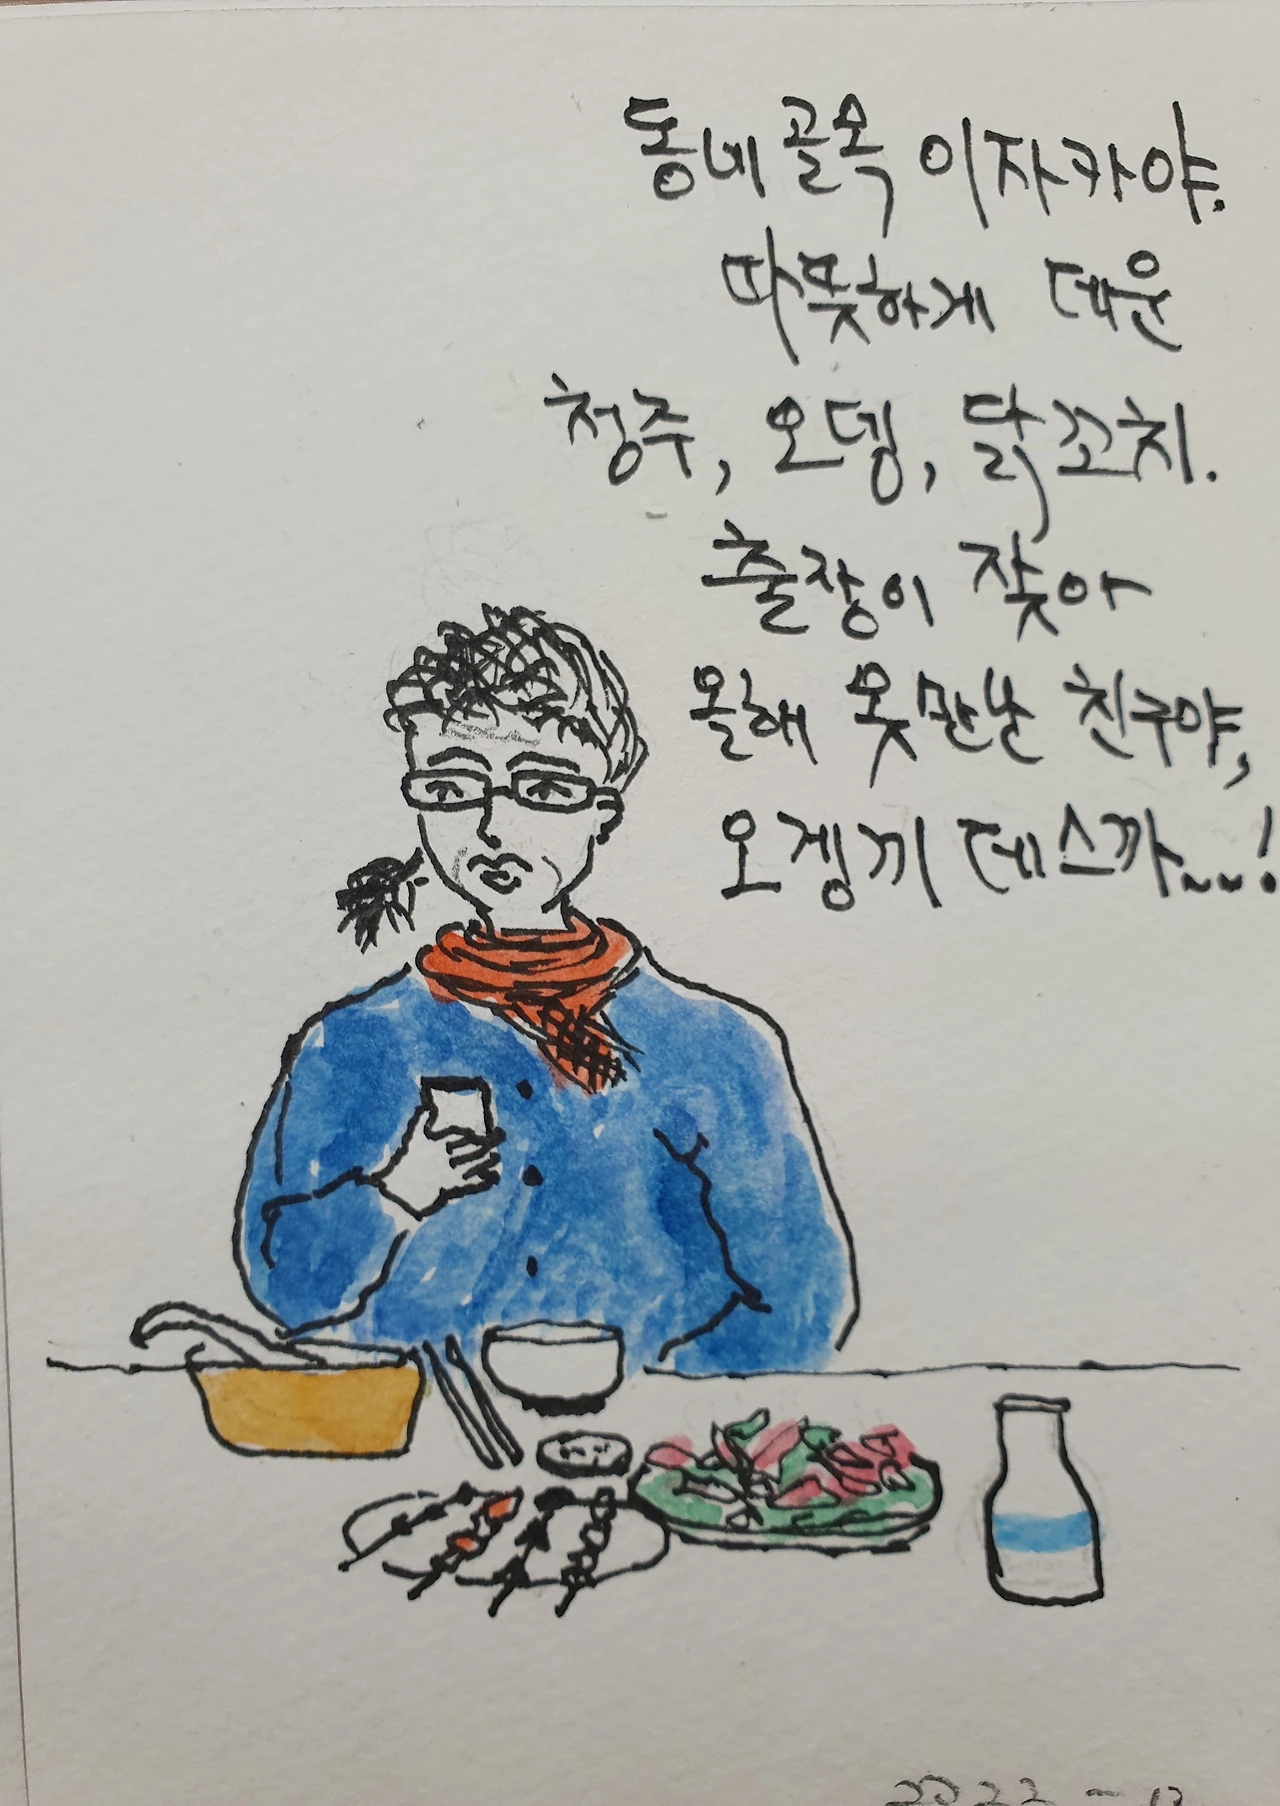 동네 골목 이자카야.
따뜻하게 데운
청주, 오뎅, 닭꼬치.
출장이 잦아
올해 못 만난 친구야,
오겡끼 데스까~~!
2022-12